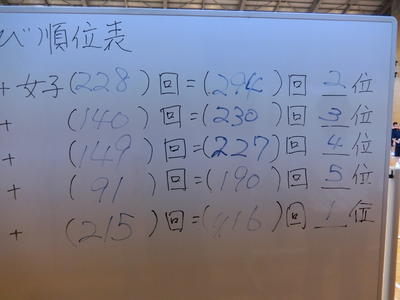 び順位表
+ 女子(228)回=(294)回 2位
+ (140)回=(230)回 3位
+ (149)回=(227)回 4位
+ (91)回=(190)回 5位
+ (215)回=(416)回 1位